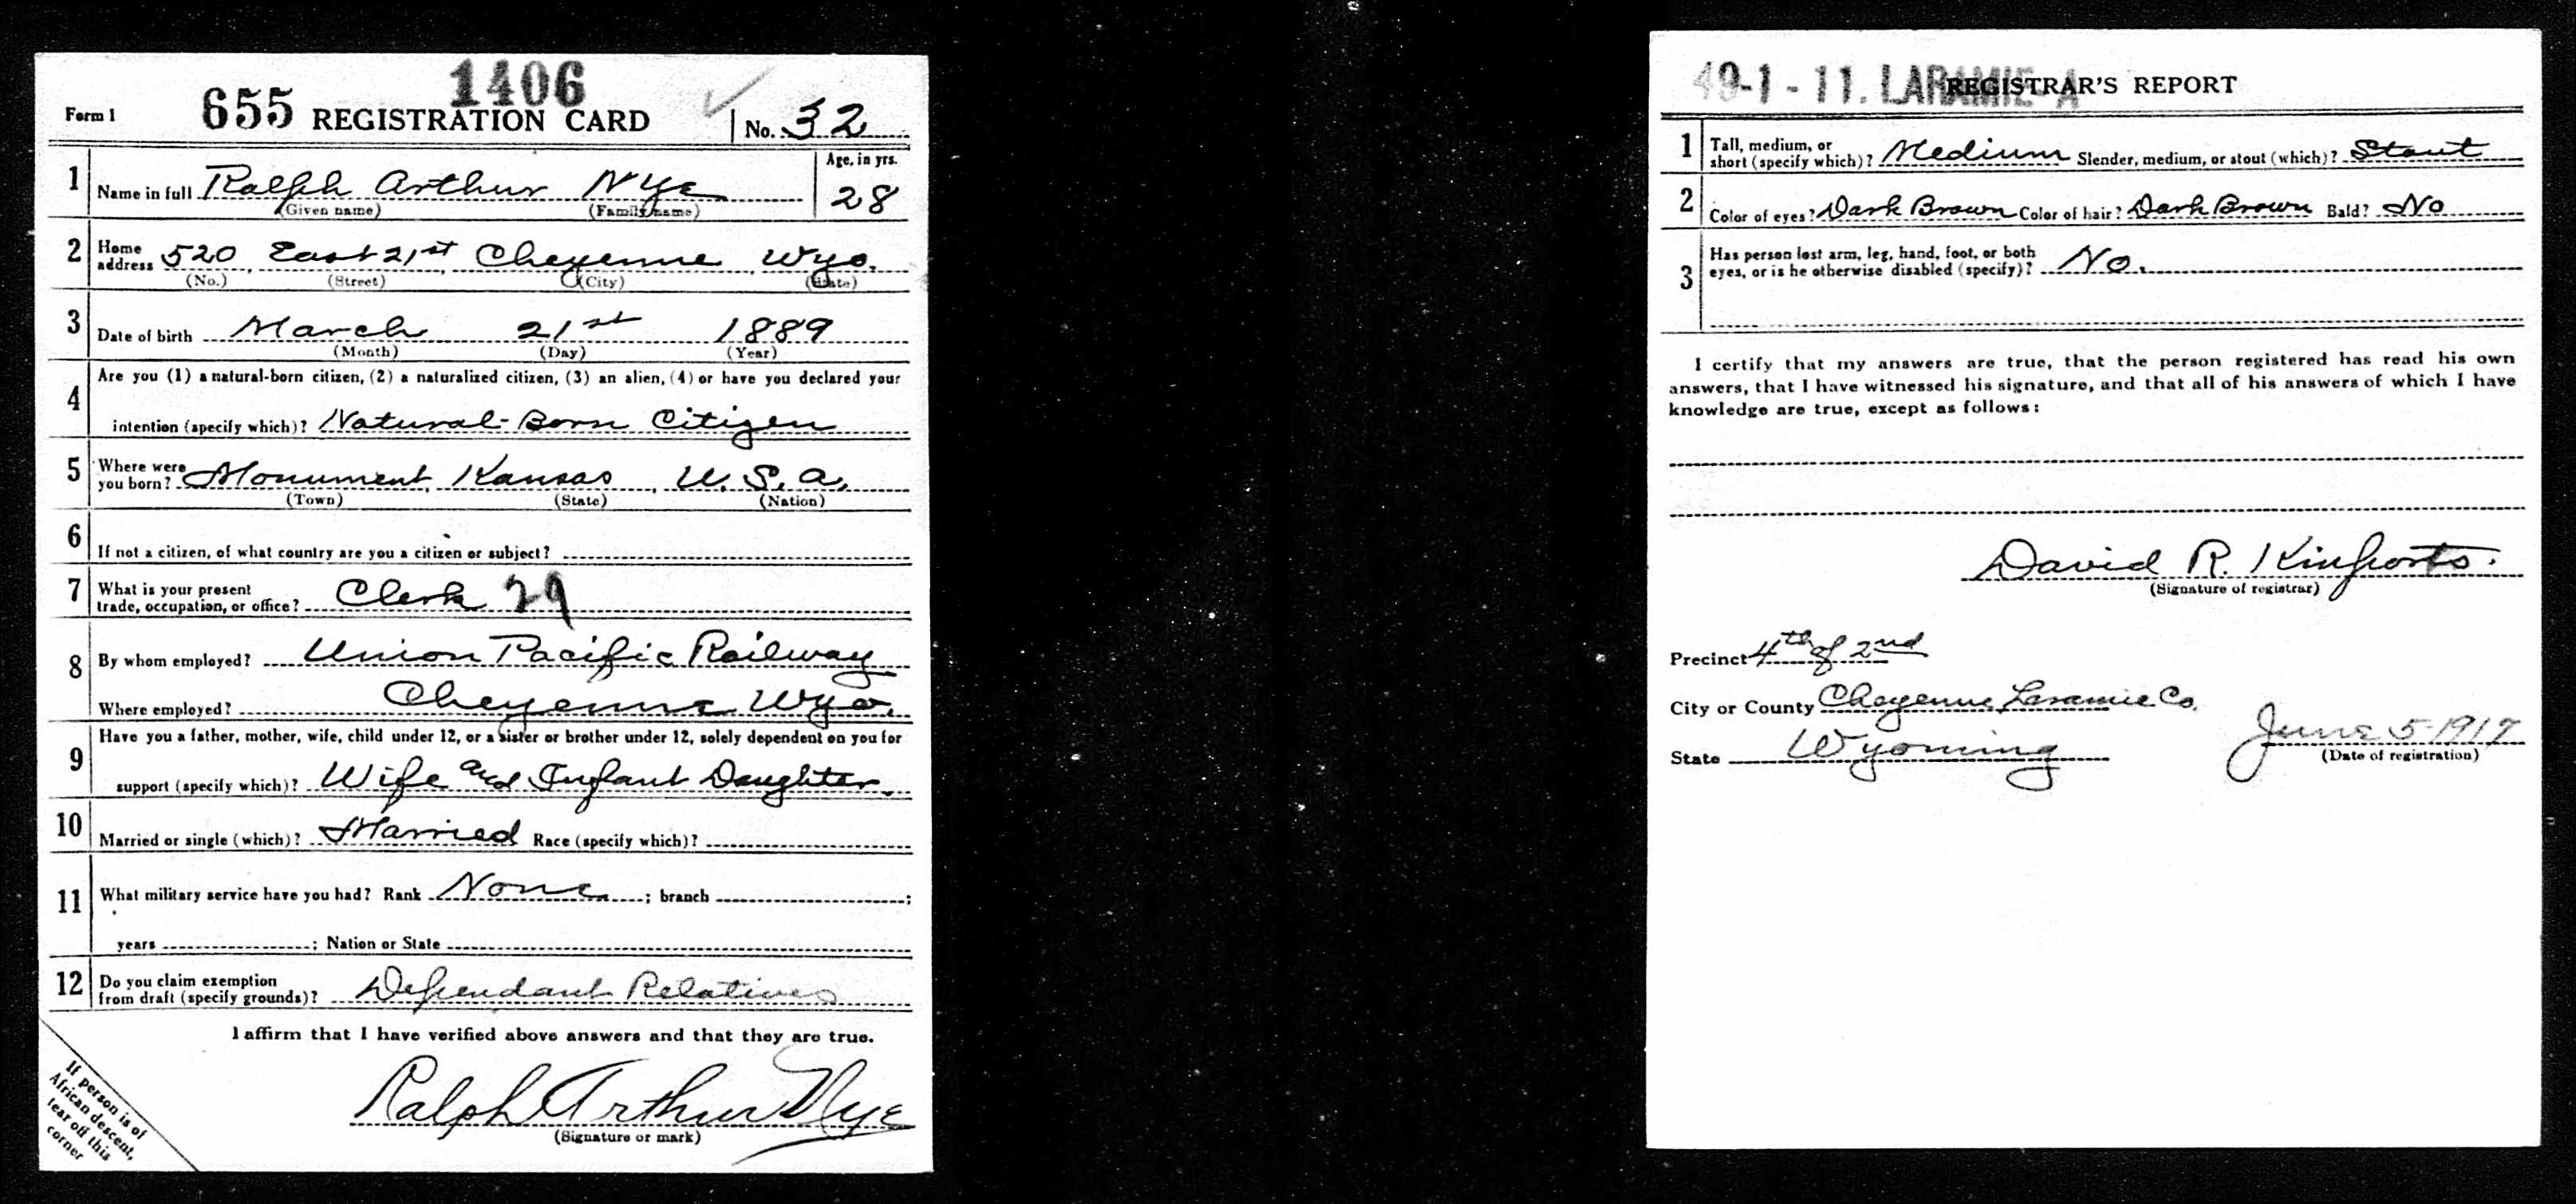 1406
Form 1 655 REGISTRATION CARD No. 32
1 Name in full Ralph Arthur Nye Age, in yrs. 28
(Given name) (Family name)
2 Home address 520 East 21st Cheyenne Wyo.
(No.) (Street) (City) (State)
3 Date of birth March 21st 1889
(Month) (Day) (Year)
4 Are you (1) a natural-born citizen, (2) a naturalized citizen, (3) an alien, (4) or have you declared your
intention (specify which)? Natural-Born Citizen
5 Where were you born? Monument, Kansas, U. S. A.
(Town) (State) (Nation)
6 If not a citizen, of what country are you a citizen or subject?
7 What is your present
trade, occupation, or office? Clerk 29
8 By whom employed? Union Pacific Railway
Where employed? Cheyenne Wyo.
9 Have you a father, mother, wife, child under 12, or a sister or brother under 12, solely dependent on you for
support (specify which)? Wife and Infant Daughter.
10 Married or single (which)? Married Race (specify which)?
11 What military service have you had? Rank None; branch ;
years ; Nation or State
12 Do you claim exemption
from draft (specify grounds)? Dependant Relatives
I affirm that I have verified above answers and that they are true.
Ralph Arthur Nye
(Signature or mark)
If person is of
African descent,
tear off this
corner
49-1-11. LARAMIE-A
REGISTRAR'S REPORT
1 Tall, medium, or
short (specify which)? Medium Slender, medium, or stout (which)? Stout
2 Color of eyes? Dark Brown Color of hair? Dark Brown Bald? No
3 Has person lost arm, leg, hand, foot, or both
eyes, or is he otherwise disabled (specify)? No.
I certify that my answers are true, that the person registered has read his own
answers, that I have witnessed his signature, and that all of his answers of which I have
knowledge are true, except as follows:
David R. Kinports.
(Signature of registrar)
Precinct 4th of 2nd
City or County Cheyenne Laramie Co.
State Wyoming June 5-1917
(Date of registration)